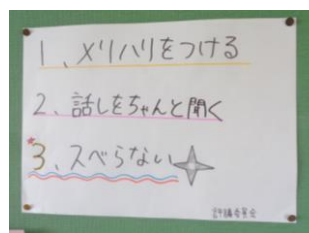 1、メリハリをつける
2、話しをちゃんと聞く
3、スベらない
評議委員会